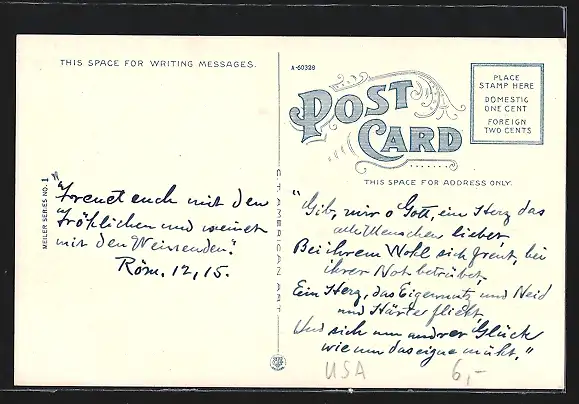 THIS SPACE FOR WRITING MESSAGES.
A-60328
POST
CARD
PLACE
STAMP HERE
DOMESTIC
ONE CENT
FOREIGN
TWO CENTS
THIS SPACE FOR ADDRESS ONLY.
MEILER SERIES NO. 1
C.T. AMERICAN ART
"Freuet euch mit den
Fröhlichen und weinet
mit den Weinenden."
Röm. 12,15.
"Gib, mir o Gott, ein Herz das
alle Menschen liebet,
Bei ihrem Wohl sich freut, bei
ihrer Not betrübet,
Ein Herz, das Eigennutz und Neid
und Härte flieht,
Und sich um andrer Glück
wie um das eigne müht."
USA 6,-